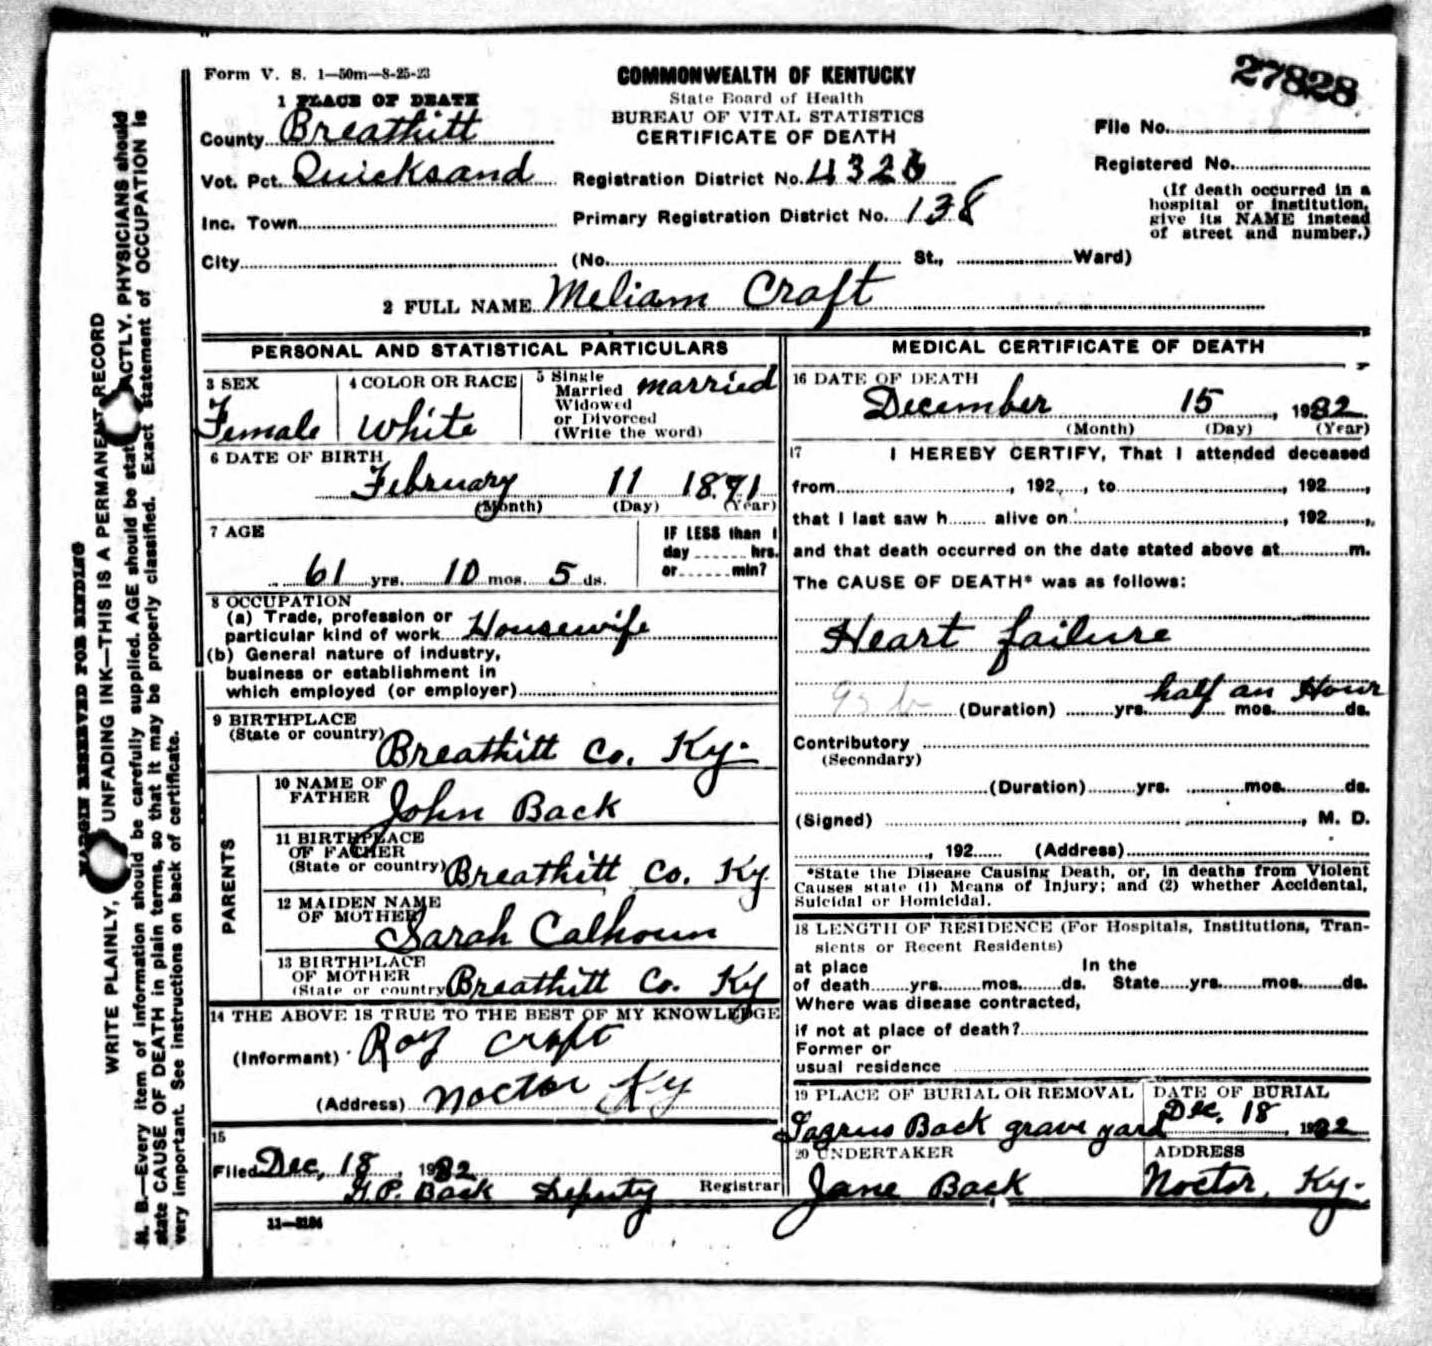 27828
Form V. S. 1—50m—8-25-23
COMMONWEALTH OF KENTUCKY
State Board of Health
BUREAU OF VITAL STATISTICS
CERTIFICATE OF DEATH
1 PLACE OF DEATH
County Breathitt
Vot. Pct. Quicksand
Inc. Town
City
Registration District No. 4326
Primary Registration District No. 138
(No. St., Ward)
File No.
Registered No.
(If death occurred in a
hospital or institution,
give its NAME instead
of street and number.)
2 FULL NAME Meliam Craft
PERSONAL AND STATISTICAL PARTICULARS
3 SEX
Female
4 COLOR OR RACE
White
5 Single
Married
Widowed
or Divorced
(Write the word)
married
6 DATE OF BIRTH
February 11 1871
(Month) (Day) (Year)
7 AGE
61 yrs. 10 mos. 5 ds.
IF LESS than 1
day hrs.
or min?
8 OCCUPATION
(a) Trade, profession or
particular kind of work Housewife
(b) General nature of industry,
business or establishment in
which employed (or employer)
9 BIRTHPLACE
(State or country)
Breathitt Co. Ky.
PARENTS
10 NAME OF
FATHER
John Back
11 BIRTHPLACE
OF FATHER
(State or country) Breathitt Co. Ky
12 MAIDEN NAME
OF MOTHER
Sarah Calhoun
13 BIRTHPLACE
OF MOTHER
(State or country Breathitt Co. Ky
14 THE ABOVE IS TRUE TO THE BEST OF MY KNOWLEDGE
(Informant) Roy Craft
(Address) Noctor Ky
15
Filed Dec, 18, 1932
G.P. Back Deputy Registrar
11—3184
MEDICAL CERTIFICATE OF DEATH
16 DATE OF DEATH
December 15, 1932
(Month) (Day) (Year)
17 I HEREBY CERTIFY, That I attended deceased
from , 192 , to , 192 ,
that I last saw h alive on , 192 ,
and that death occurred on the date stated above at m.
The CAUSE OF DEATH* was as follows:
Heart failure
95 b
half an Hour
(Duration) yrs. mos. ds.
Contributory
(Secondary)
(Duration) yrs. mos. ds.
(Signed) , M. D.
, 192 (Address)
*State the Disease Causing Death, or, in deaths from Violent
Causes state (1) Means of Injury; and (2) whether Accidental,
Suicidal or Homicidal.
18 LENGTH OF RESIDENCE (For Hospitals, Institutions, Tran-
sients or Recent Residents)
at place In the
of death yrs. mos. ds. State yrs. mos. ds.
Where was disease contracted,
if not at place of death?
Former or
usual residence
19 PLACE OF BURIAL OR REMOVAL
Back grave yard
DATE OF BURIAL
Dec. 18, 1932
20 UNDERTAKER
Jane Back
ADDRESS
Noctor, Ky.
MARGIN RESERVED FOR BINDING
WRITE PLAINLY, UNFADING INK—THIS IS A PERMANENT RECORD
N. B.—Every item of information should be carefully supplied. AGE should be stat ACTLY. PHYSICIANS should
state CAUSE OF DEATH in plain terms, so that it may be properly classified. Exact statement of OCCUPATION is
very important. See instructions on back of certificate.